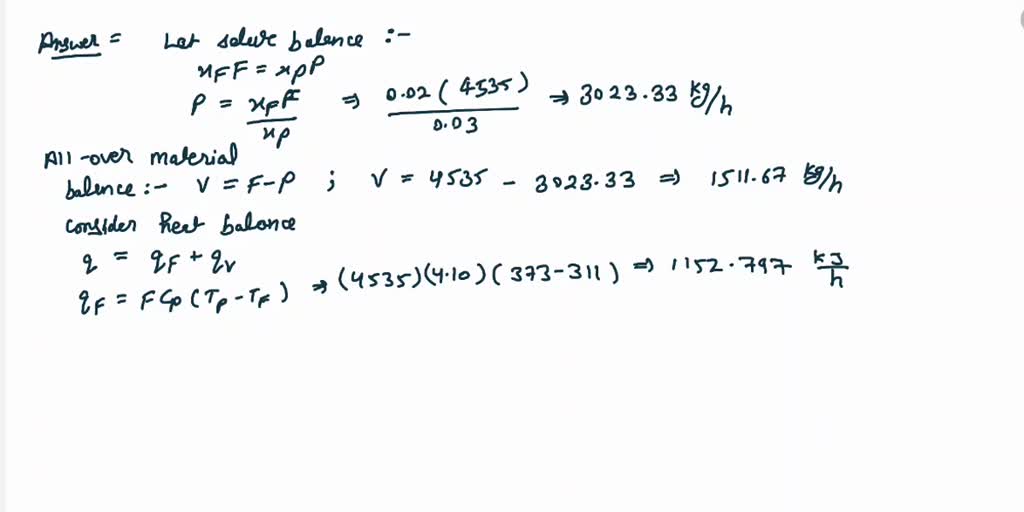 Answer = Let solve balence :-
xFF = xpP
P = xFF/xp ⇒ 0.02(4535)/0.03 ⇒ 3023.33 kg/h
All-over material
balence:- V = F-P ; V = 4535 - 3023.33 ⇒ 1511.67 kg/h
Consider heat balance
q = qF + qv
qF = FCp(Tp-TF) ⇒ (4535)(4.10)(373-311) ⇒ 1152.797 kJ/h